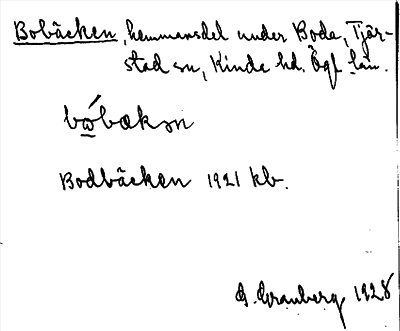 Bobäcken, hemmansdel under Boda, Tjär-
stad sn, Kinda hd. Ögl. län.
bo̲´bækən
Bodbäcken 1921 kb.
G. Granberg 1928